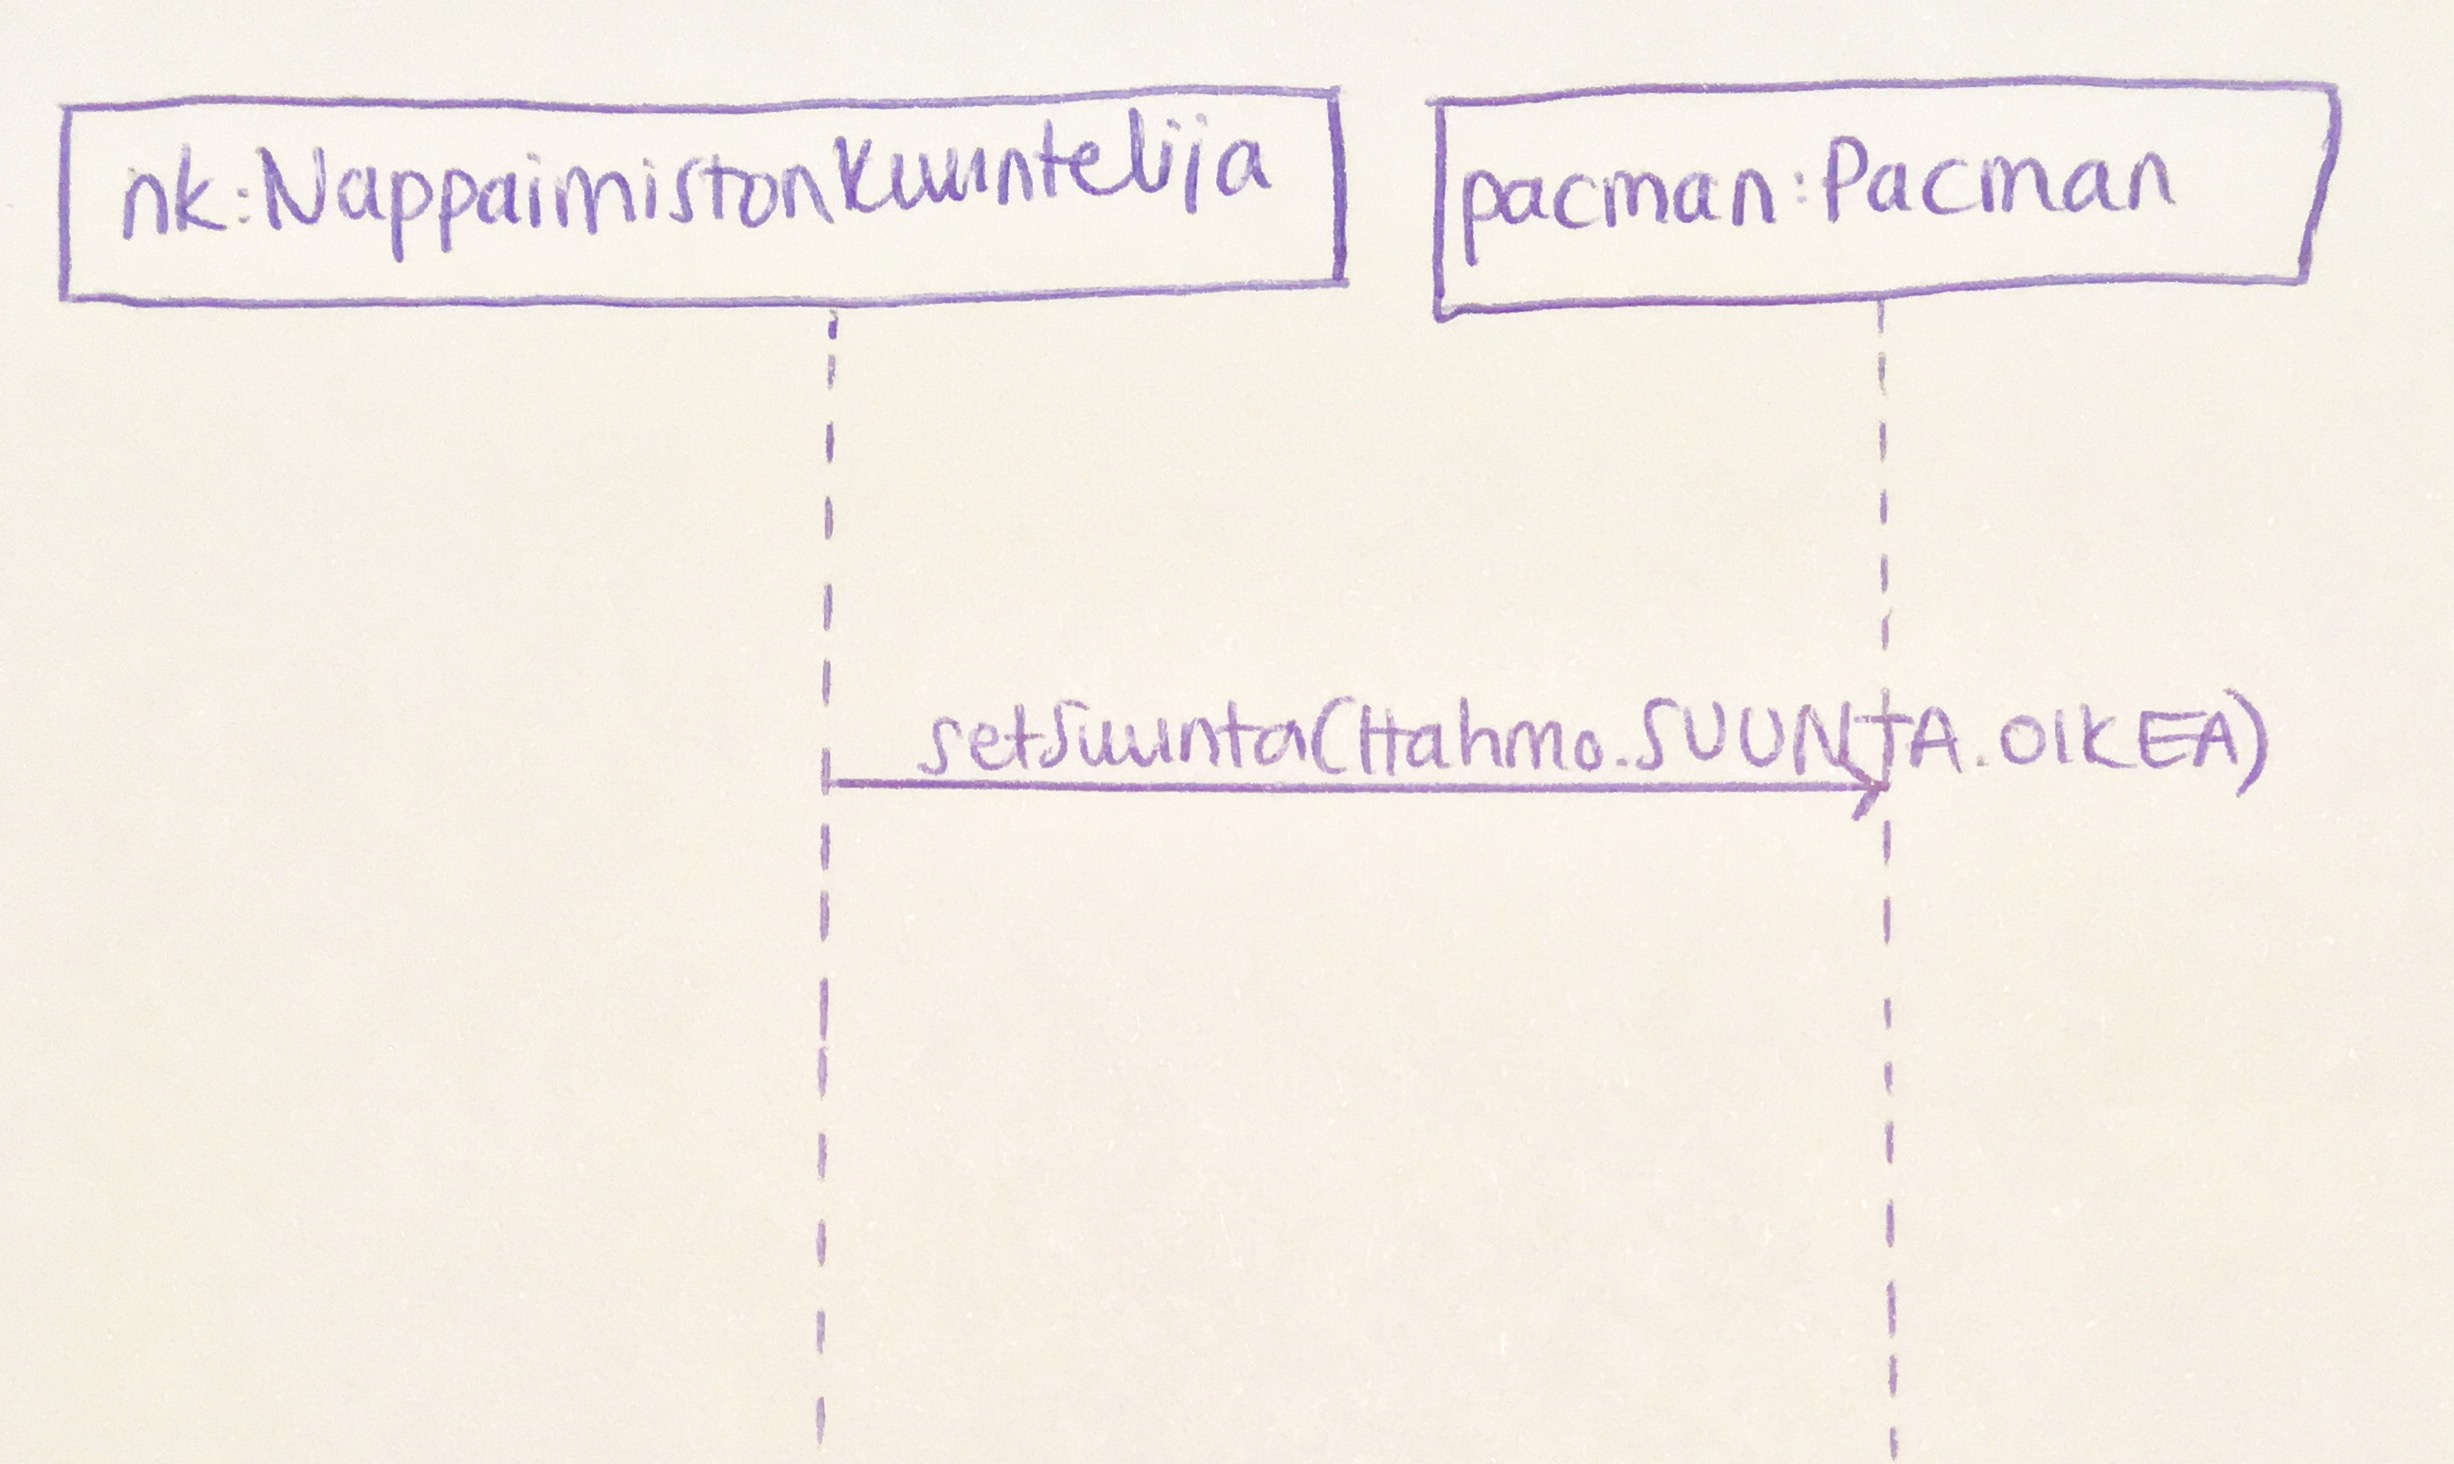 nk:NappaimistonKuuntelija
pacman:Pacman
setSuunta(Hahmo.SUUNTA.OIKEA)